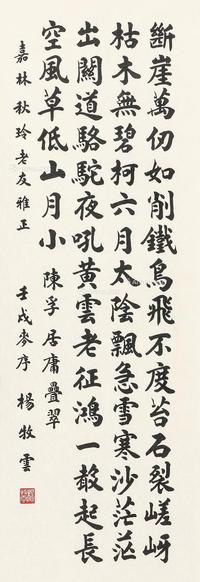 斷崖萬仞如削鐵鳥飛不度苔石裂嵯岈
枯木無碧柯六月太陰飄急雪寒沙茫茫
出關道駱駝夜吼黃雲老征鴻一散起長
空風草低山月小 陳孚居庸疊翠
嘉林秋玲老友雅正 壬戌麥序 楊牧雲